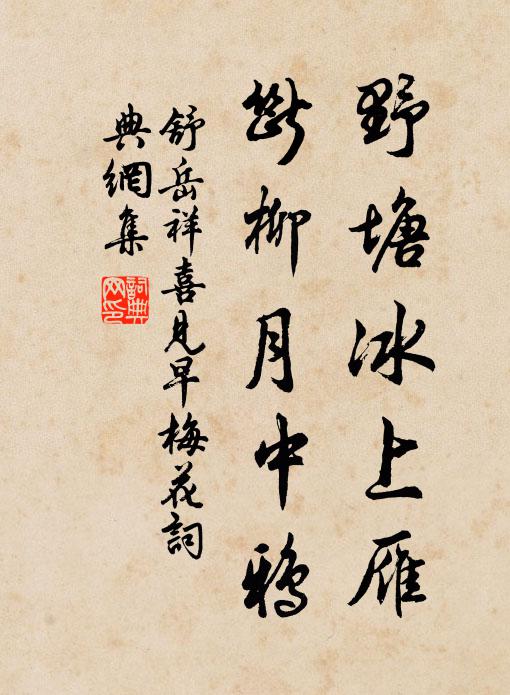 野塘冰上雁
斷柳月中鴉
舒岳祥喜見早梅花詞
典網集
詞典
网印